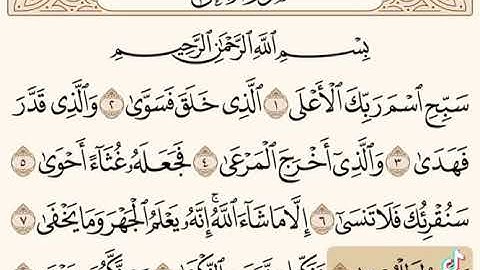 بِسْمِ ٱللَّهِ ٱلرَّحْمَٰنِ ٱلرَّحِيمِ
سَبِّحِ ٱسْمَ رَبِّكَ ٱلْأَعْلَى ١ ٱلَّذِى خَلَقَ فَسَوَّىٰ ٢ وَٱلَّذِى قَدَّرَ
فَهَدَىٰ ٣ وَٱلَّذِىٓ أَخْرَجَ ٱلْمَرْعَىٰ ٤ فَجَعَلَهُۥ غُثَآءً أَحْوَىٰ ٥
سَنُقْرِئُكَ فَلَا تَنسَىٰٓ ٦ إِلَّا مَا شَآءَ ٱللَّهُ ۚ إِنَّهُۥ يَعْلَمُ ٱلْجَهْرَ وَمَا يَخْفَىٰ ٧